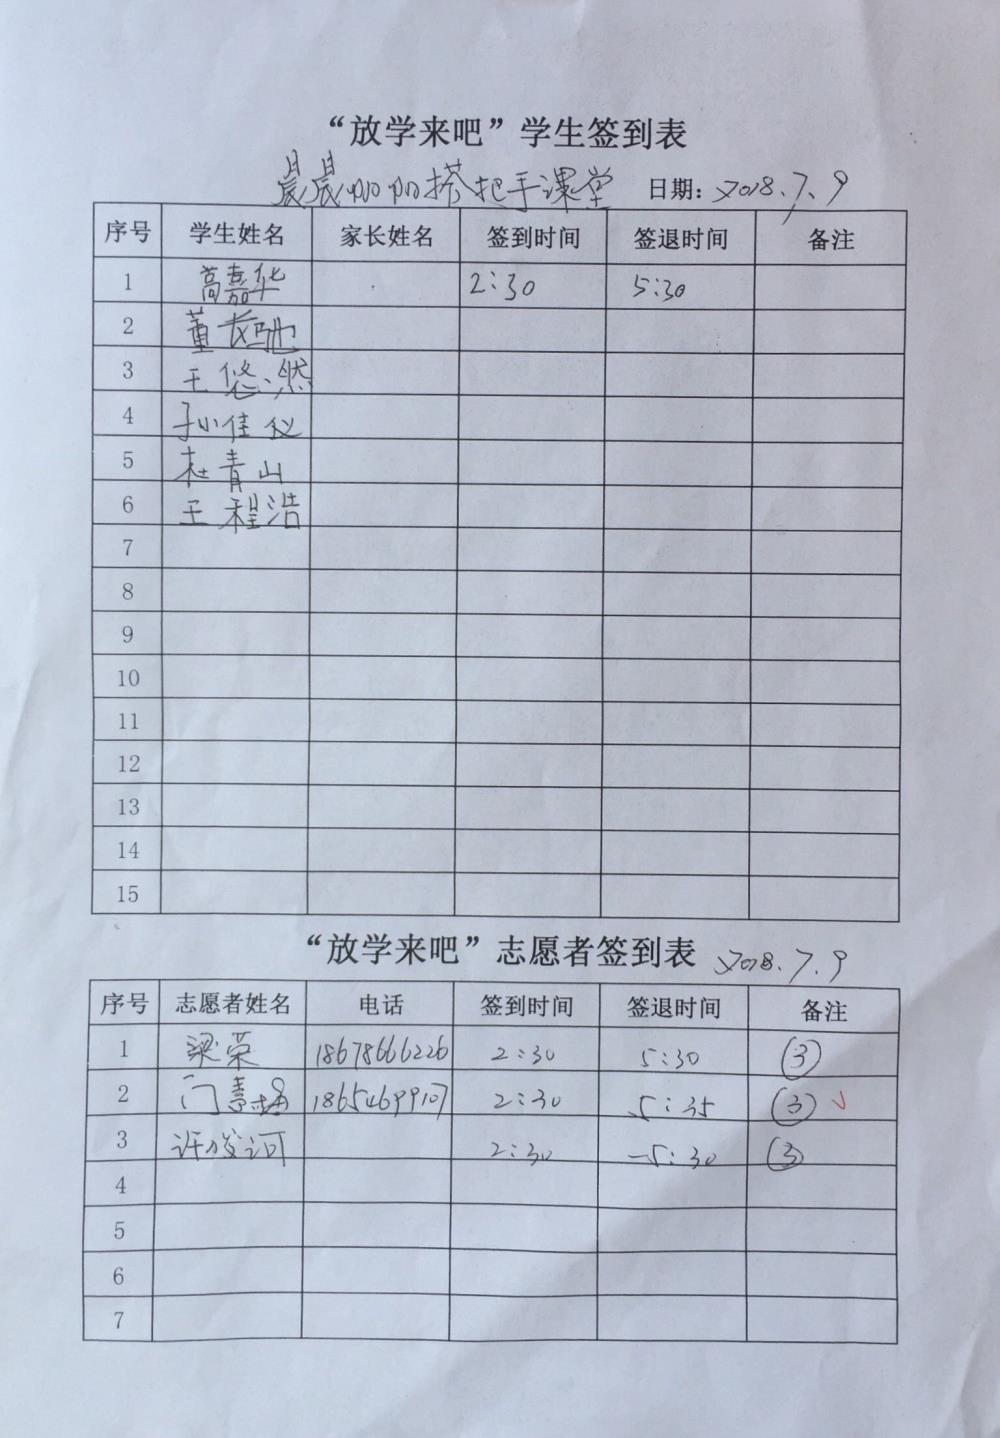 “放学来吧”学生签到表
晨晨 搭把手课堂 日期：2018.7.9
序号 学生姓名 家长姓名 签到时间 签退时间 备注
1 高嘉华 2:30 5:30
2 董 驰
3 王悠然
4 孙佳仪
5 杜青山
6 王程浩
7
8
9
10
11
12
13
14
15
“放学来吧”志愿者签到表 2018.7.9
序号 志愿者姓名 电话 签到时间 签退时间 备注
1 梁荣 18678666226 2:30 5:30 ③
2 门慧 18654699107 2:30 5:35 ③ ✓
3 许 河 2:30 5:30 ③
4
5
6
7